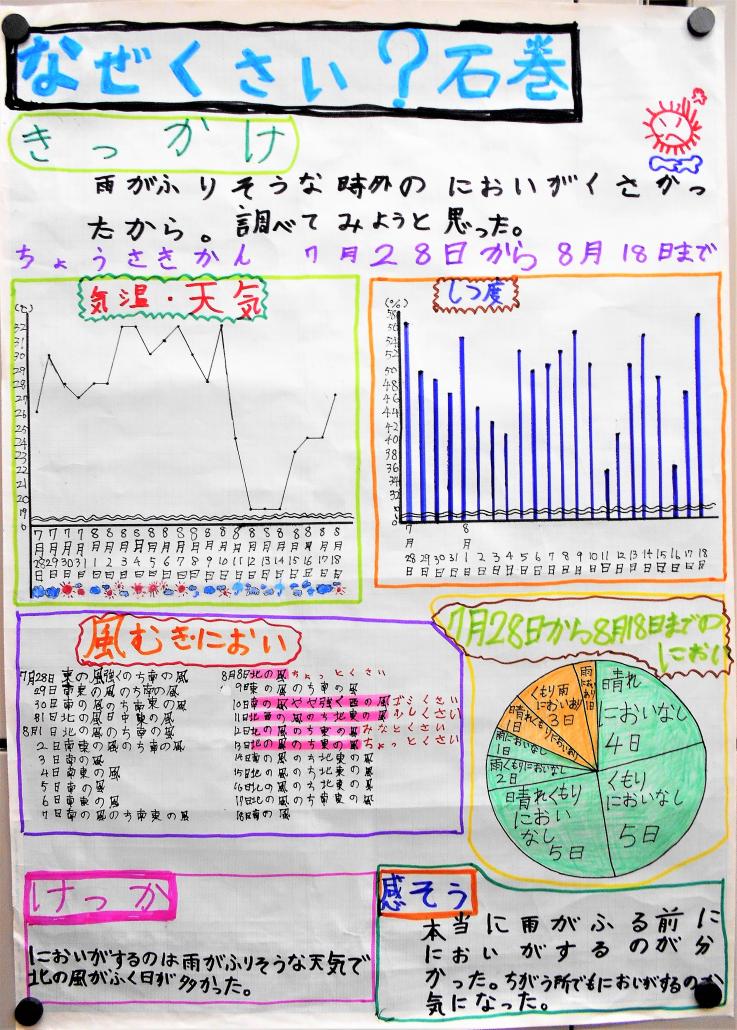 なぜくさい？石巻
きっかけ
雨がふりそうな時外のにおいがくさかっ
たから。調べてみようと思った。
ちょうさきかん 7月28日から8月18日まで
気温・天気
(℃)
32
31
30
29
28
27
26
25
24
23
22
21
20
19
0
7月28日
7月29日
7月30日
7月31日
8月1日
8月2日
8月3日
8月4日
8月5日
8月6日
8月7日
8月8日
8月9日
8月10日
8月11日
8月12日
8月13日
8月14日
8月15日
8月16日
8月17日
8月18日
しつ度
(%)
58
50
48
46
44
42
40
38
36
34
0
7月 8月
28日 29日 30日 31日 1日 2日 3日 4日 5日 6日 7日 8日 9日 10日 11日 12日 13日 14日 15日 16日 17日 18日
風むき・におい
7月28日 東の風強くのち南の風
29日 南東の風のち南の風
30日 南の風のち南東の風
31日 北の風日中東の風
8月1日 北の風のち南の風
2日 南東の風のち南の風
3日 南の風
4日 南東の風
5日 南の風
6日 南東の風
7日 南の風のち南東の風
8月8日 北の風 ちょっとくさい
9日 東の風のち南の風
10日 南の風やや強く西の風 すごくくさい
11日 北西の風のち北の風 すこしくさい
12日 北の風のち北東の風 みなとくさい
13日 北の風のち北東の風 ちょっとくさい
14日 北の風のち北東の風
15日 北の風のち北東の風
16日 北の風のち北東の風
17日 北の風のち南東の風
18日 南の風
7月28日から8月18日までの
におい
晴れ
においなし
4日
くもり
においなし
5日
晴れくもり
におい
なし
5日
雨くもりにおいなし
2日
雨においなし
1日
晴れくもりにおいあり
1日
くもり雨
においあり
3日
雨
においあり
1日
けっか
においがするのは雨がふりそうな天気で
北の風がふく日が多かった。
感そう
本当に雨がふる前に
においがするのが分
かった。ちがう所でもにおいがするのか
気になった。